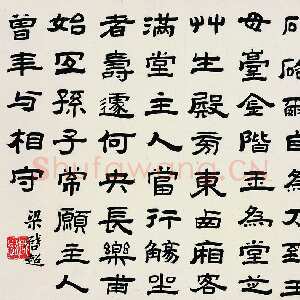 爾到王
母臺金階玉為堂芝
艸生殿旁東西廂客
滿堂主人當行觴坐
者壽遽何央長樂甫
始宜孫子常願主人
曾年与相守
梁啓超
Shufawang.CN